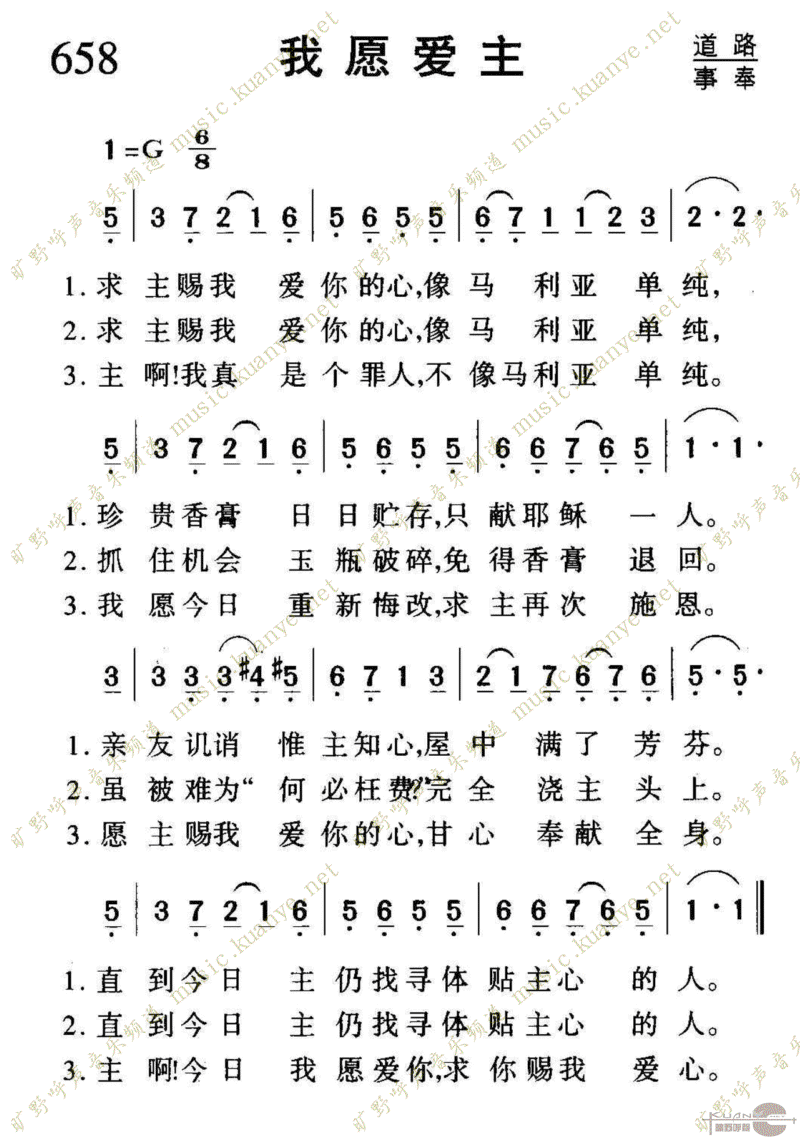 658 我愿爱主 道路
事奉
1=G 6/8
5 | 3 7 2 1 6 | 5 6 5 5 | 6 7 1 1 2 3 | 2· 2·
1.求 主赐我 爱你的心,像马 利亚 单纯,
2.求 主赐我 爱你的心,像马 利亚 单纯,
3.主 啊!我真 是个罪人,不 像马利亚 单纯。
5 | 3 7 2 1 6 | 5 6 5 5 | 6 6 7 6 5 | 1· 1·
1.珍 贵香膏 日日贮存,只 献耶稣 一人。
2.抓 住机会 玉瓶破碎,免 得香膏 退回。
3.我 愿今日 重新悔改,求 主再次 施恩。
3 | 3 3 3 #4 #5 | 6 7 1 3 | 2 1 7 6 7 6 | 5· 5·
1.亲 友讥诮 惟主知心,屋中 满了 芳芬。
2.虽 被难为“何必枉费?”完全 浇主 头上。
3.愿 主赐我 爱你的心,甘心 奉献 全身。
5 | 3 7 2 1 6 | 5 6 5 5 | 6 6 7 6 5 | 1· 1 ‖
1.直 到今日 主仍找寻体 贴主心 的人。
2.直 到今日 主仍找寻体 贴主心 的人。
3.主 啊!今日 我愿爱你,求 你赐我 爱心。
旷野呼声音乐频道 music.kuanye.net
KUANYE
旷野呼声